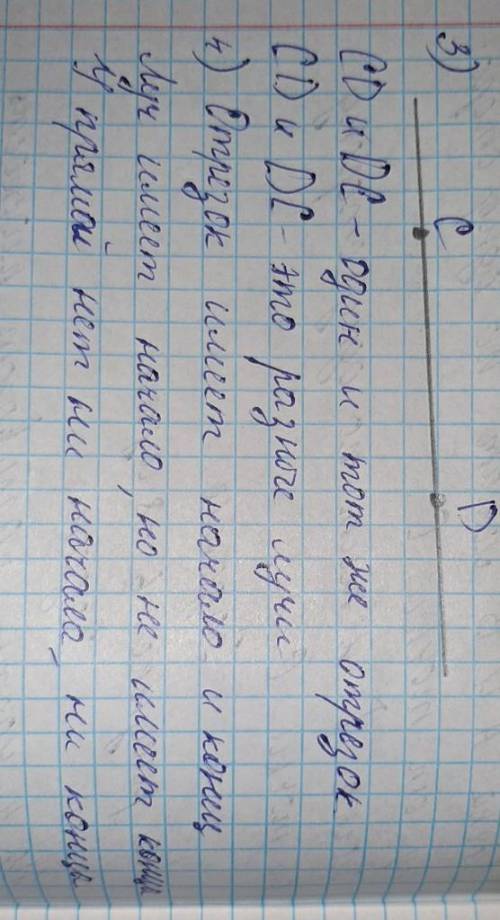 3)
C D
CD и DC - один и тот же отрезок
CD и DC - это разные лучи
4) Отрезок имеет начало и конец
Луч имеет начало, но не имеет конца
У прямой нет ни начала, ни конца